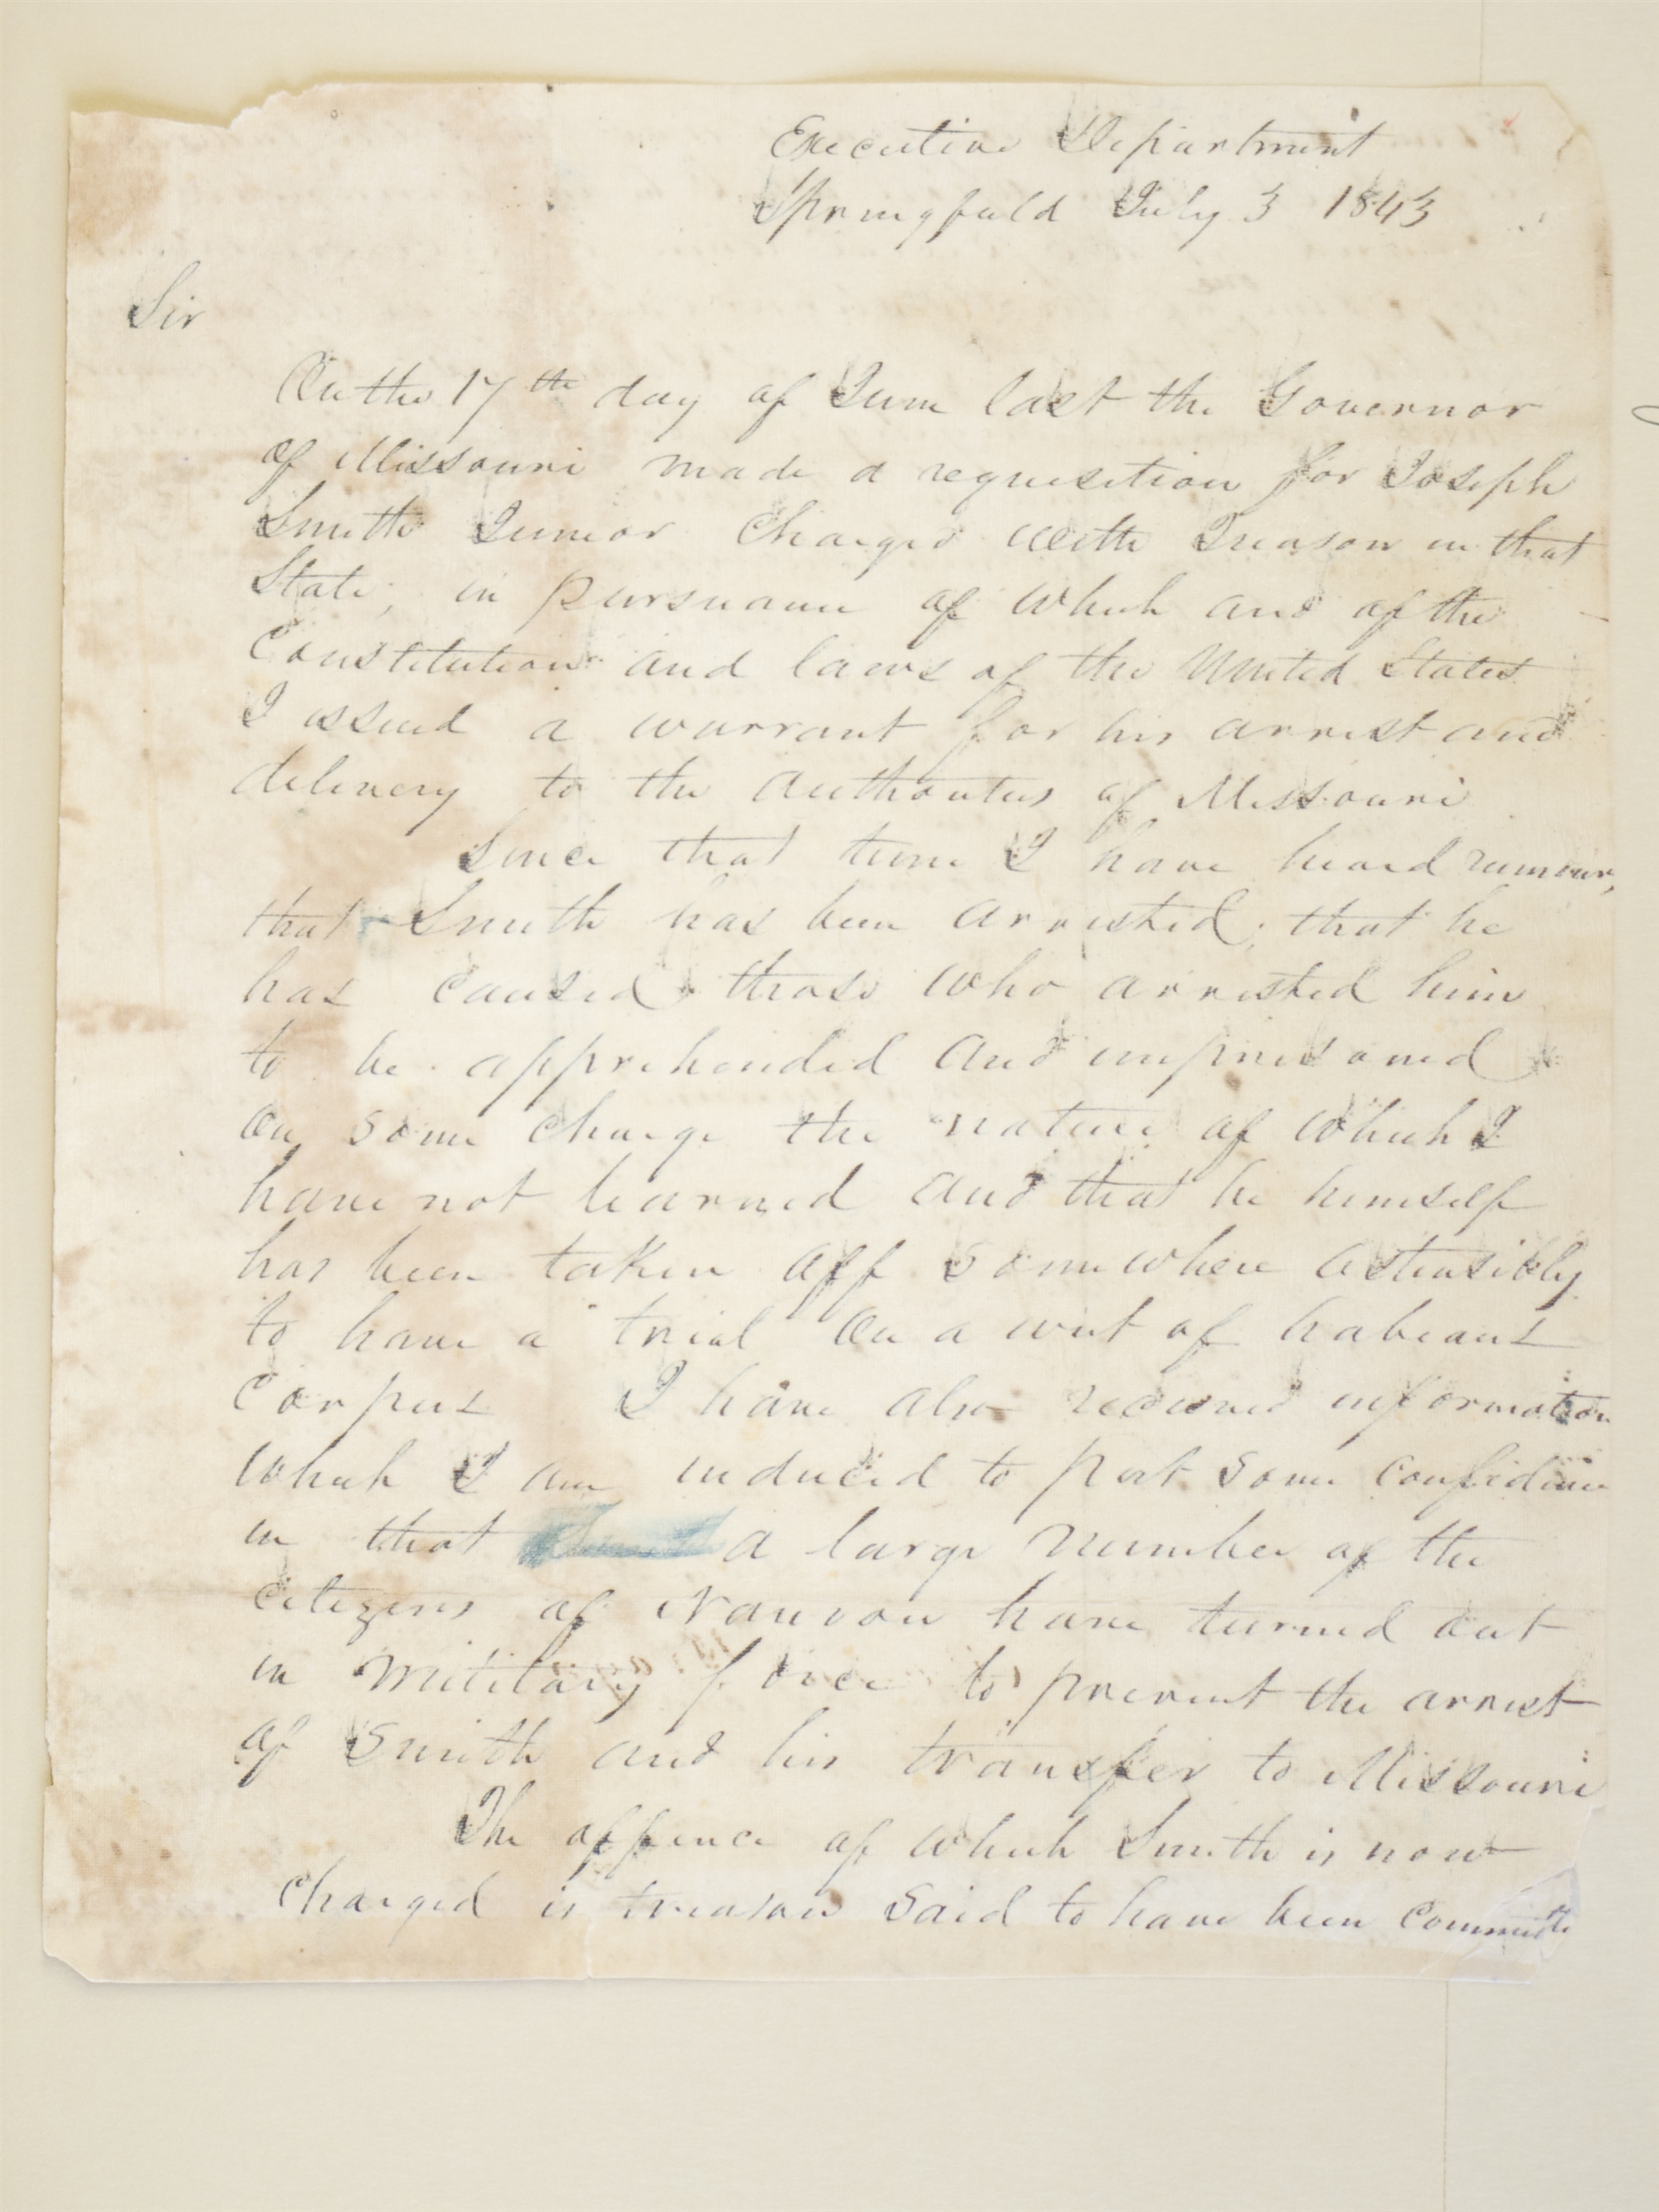 Executive Department
Springfield July 3 1843
Sir
On the 17th day of June last the Governor
of Missouri made a requisition for Joseph
Smith Junior charged with Treason in that
State; in pursuance of which and of the
Constitution and laws of the United States
I issued a warrant for his arrest and
delivery to the authorities of Missouri
Since that time I have heard rumors,
that Smith has been arrested; that he
has caused those who arrested him
to be apprehended and imprisoned
on some charge the nature of which I
have not learned and that he himself
has been taken off somewhere ostensibly
to have a trial on a writ of habeaus
corpus I have also received information
which I am induced to put some confidence
in that a large number of the
citizens of Nauvoo have turned out
in military force to prevent the arrest
of Smith and his transfer to Missouri
The offence of which Smith is now
charged is treason said to have been committe